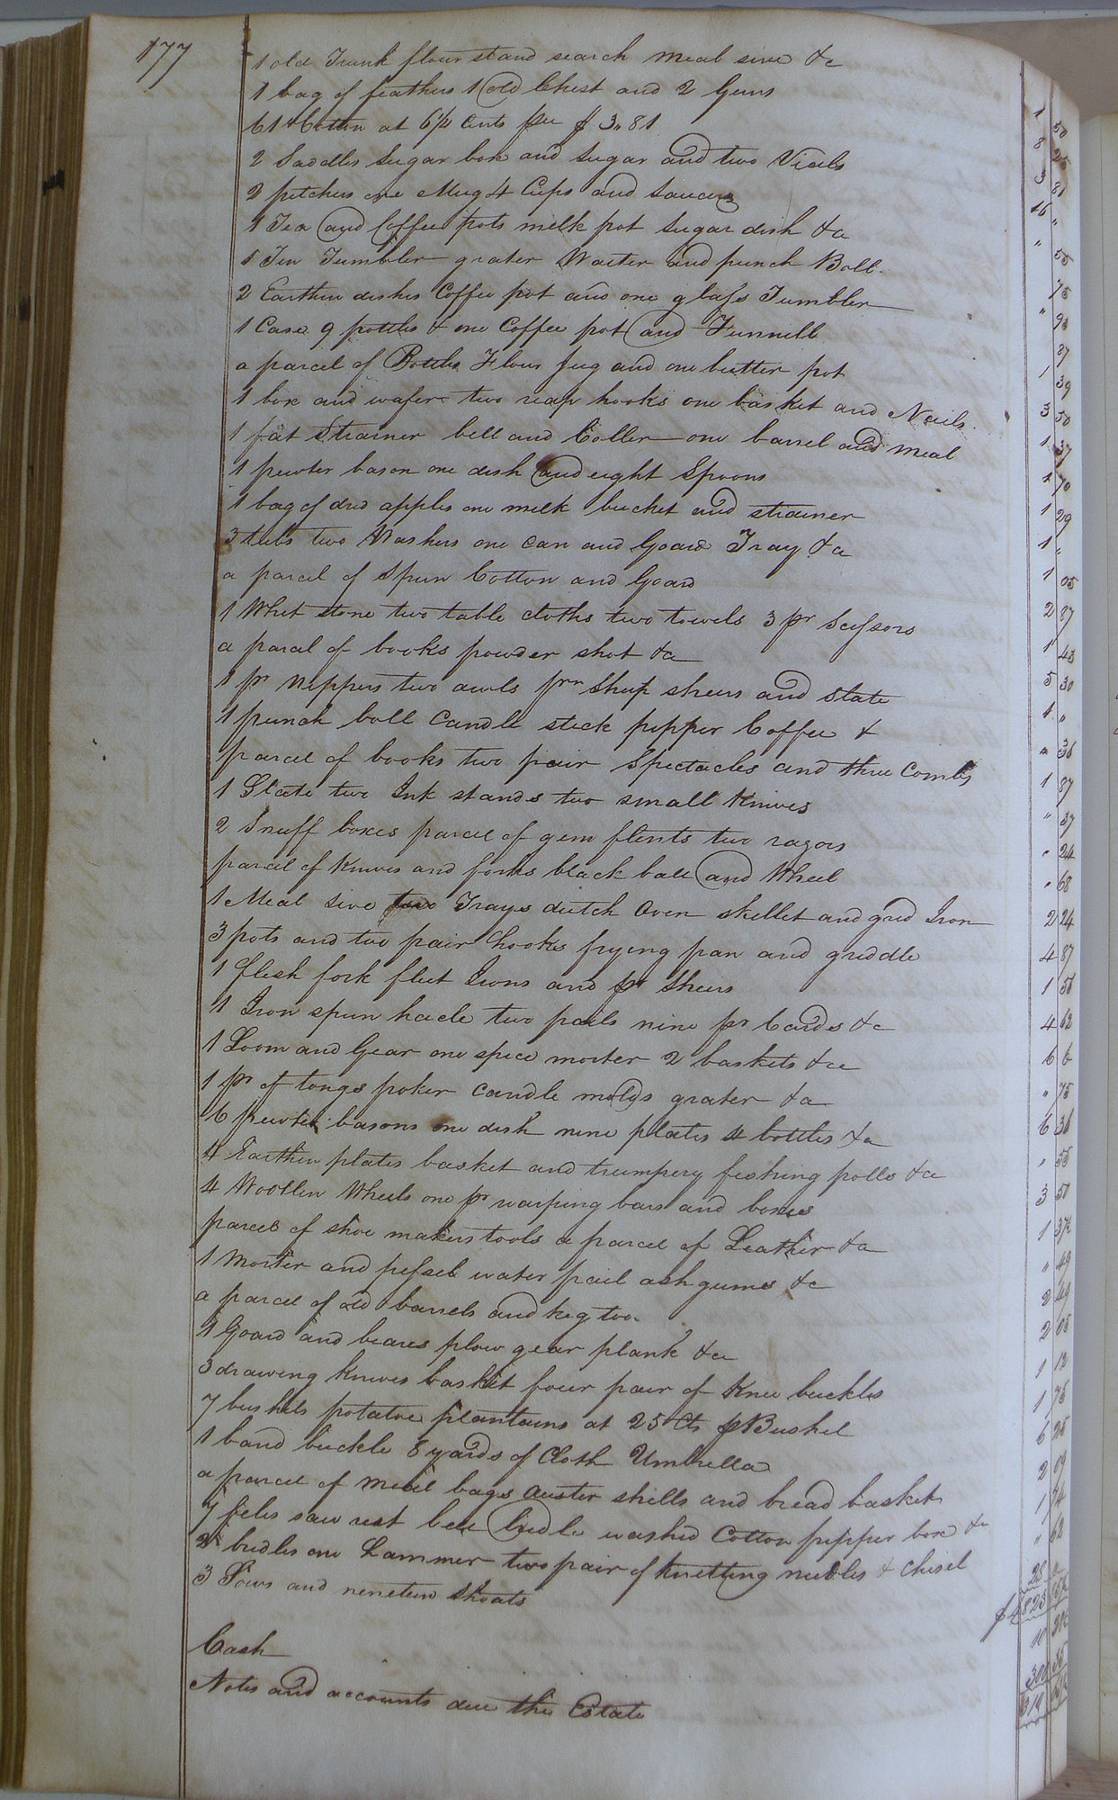 177
1 old Trunk flour stand search meal sive &c
1 bag of feathers 1 old Chest and 2 Guns 1 50
61 Cotton at 6¼ Cents per $ 3.81 8 25
2 Saddles Sugar box and Sugar and two Vials 3 81
2 pitchers one Mug 4 Cups and Saucers 16 "
1 Tea and Coffee pots milk pot Sugar dish &c "
1 Tin Tumbler grater Waiter and punch Boll 75
2 Earthen dishes Coffee pot and one glass Tumbler
1 Case 9 pottles & one Coffee pot and Funnell 87
a parcel of Bottles Flour jug and one butter pot 39
1 box and wafers two reap hooks one basket and Nails 3 50
1 fat Strainer bell and Coller one barrel and meal 1 37
1 pewter bason one dish and eight Spoons
1 bag of dred apples one melk bucket and strainer 1 29
3 tubs two Washers one can and Goard Tray &c 1 "
a parcel of Spun Cotton and Goard 1 05
1 Whet stone two table cloths two towels 3 pr Scissors 2 87
a parcel of books powder shot &c 1 43
1 pr Nippers two awls prr Sheep shears and slate 5 30
1 punch boll Candle stick pepper Coffee &
parcel of books two pair Spectacles and three Combs " 36
1 Slate two Ink stands two small Knives 1 87
2 Snuff boxes parcel of gem flints two razors " 37
parcel of Knives and forks black ball and Wheel " 24
1 Meal sive two Trays dutch Oven skellet and grid Iron " 68
3 pots and two pair hooks frying pan and griddle 2 24
1 flesh fork fleet Irons and pr Shears 4 87
1 Iron spun hacle two pails nine pr Cards &c 1 50
1 Loom and Gear one spice morter 2 baskets &c 4 62
1 pr of tongs poker candle molds grater &c 6 6
6 pewter basons one dish nine plates 4 bottles &c " 75
4 Earthen plates basket and trumpery fishing polls &c 6 36
4 Woollen Wheels one pr warping bars and boxes
parcel of shoe makers tools a parcel of Leather &c 3 50
1 Morter and pessel water pail ash gums &c 1 37½
a parcel of old barrels and keg too " 49
1 Goard and beans plow gear plank &c 2
3 drawing Knives basket four pair of Knee buckles 2
7 bushels potatoe plantains at 25 Cts pr Bushel 1 12
1 band buckle 8 yards of Cloth Umbrella 1 75
a parcel of Meal bags auster shells and bread basket 6 25
7 files saw rest bell bridle washed Cotton pepper box &c 2
2 bridles one Hammer two pair of knetting nedles & chisel 1
3 Sows and nineteen Shoats 28
Cash 10
Notes and accounts due the Estate